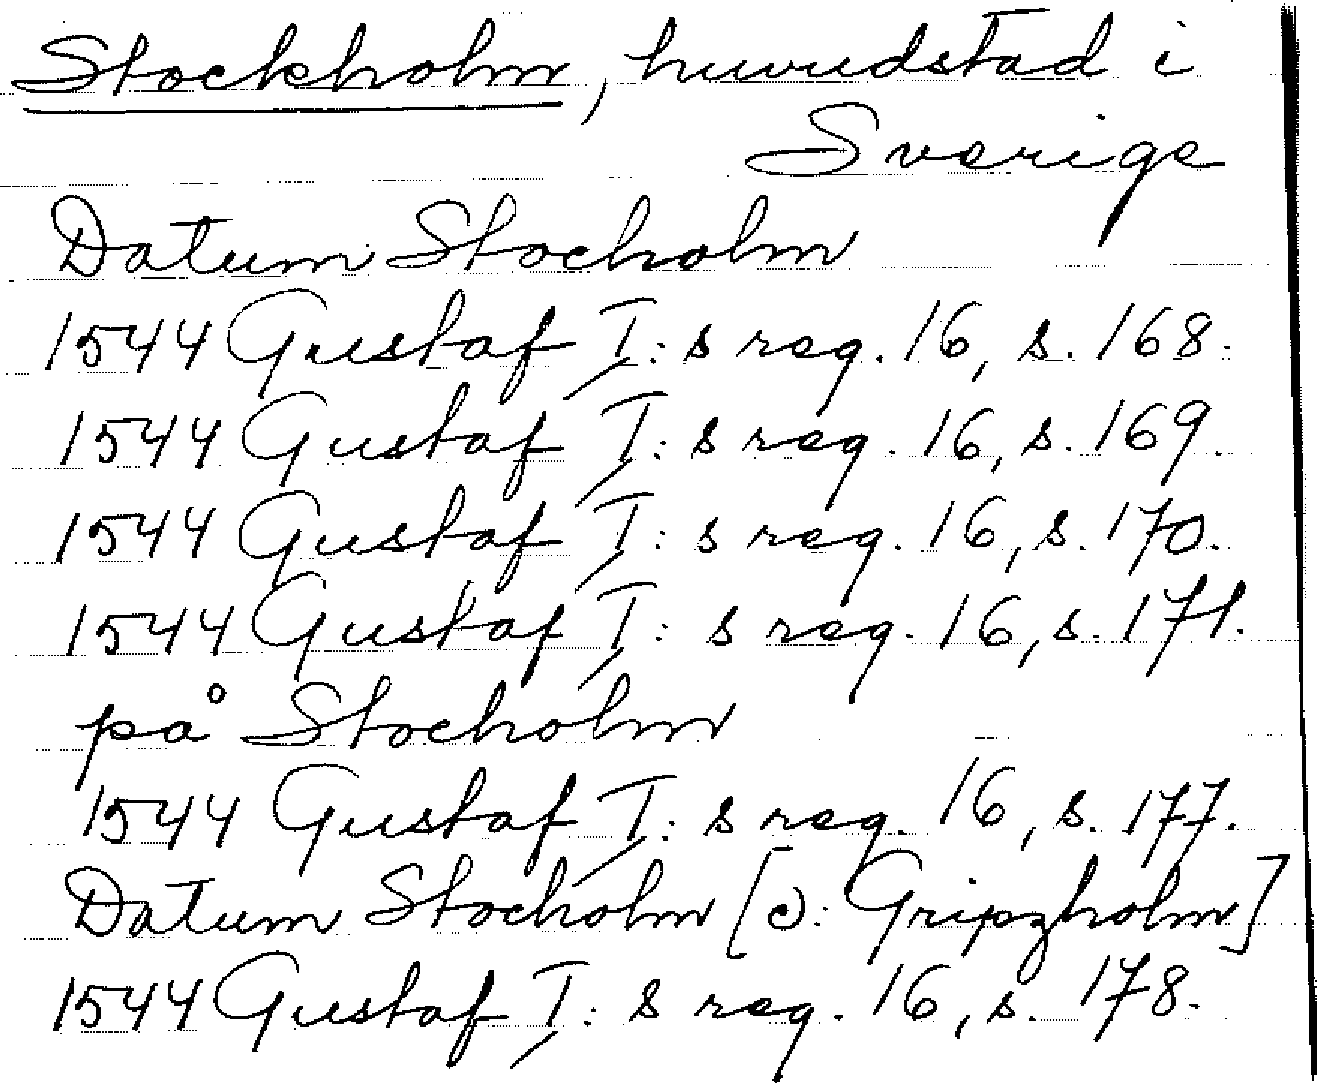 Stockholm, huvudstad i
Sverige
Datum Stocholm
1544 Gustaf I:s reg. 16, s. 168.
1544 Gustaf I:s reg. 16, s. 169.
1544 Gustaf I:s reg. 16, s. 170.
1544 Gustaf I:s reg. 16, s. 171.
på Stocholm
1544 Gustaf I:s reg. 16, s. 177.
Datum Stocholm [ɔ: Gripzholm]
1544 Gustaf I:s reg. 16, s. 178.